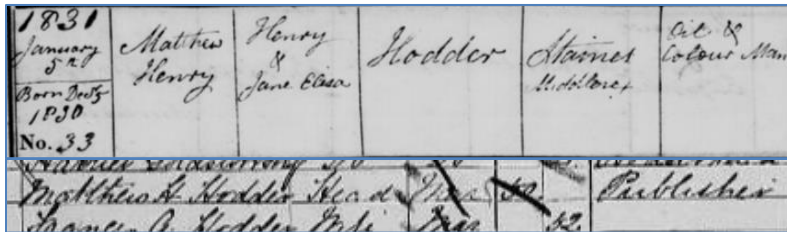 1831
January
5th
Born Dec 5
1830
No. 33
Matthew
Henry
Henry
&
Jane Elisa
Hodder
Staines
Middlesex
Oil &
Colour Man
Matthew H Hodder Head Mar 50 Publisher
Frances A Hodder Wife Mar 52